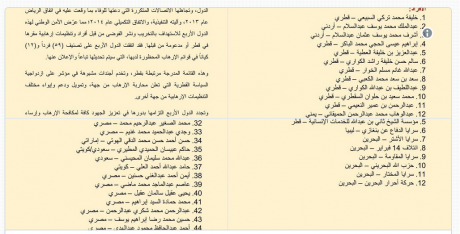 الأفراد:
1. خليفة محمد تركي السبيعي – قطري
2. عبدالملك محمد يوسف عبدالسلام – أردني
3. أشرف محمد يوسف عثمان عبدالسلام – أردني
4. إبراهيم عيسى الحجي محمد الباكر – قطري
5. عبدالعزيز بن خليفة العطية – قطري
6. سالم حسن خليفة راشد الكواري – قطري
7. عبدالله غانم مسلم الخوار – قطري
8. سعد بن سعد محمد الكعبي – قطري
9. عبداللطيف بن عبدالله الكواري – قطري
10. محمد سعيد بن حلوان السقطري – قطري
11. عبدالرحمن بن عمير النعيمي – قطري
12. عبدالوهاب محمد عبدالرحمن الحميقاني – يمني
5. مؤسسة الشيخ ثاني بن عبدالله للخدمات الإنسانية – قطر
6. سرايا الدفاع عن بنغازي – ليبيا
7. سرايا الأشتر – البحرين
8. ائتلاف 14 فبراير – البحرين
9. سرايا المقاومة – البحرين
10. حزب الله البحريني – البحرين
11. سرايا المختار – البحرين
12. حركة أحرار البحرين – البحرين
الدول، وتجاهلها الاتصالات المتكررة التي دعتها للوفاء بما وقعت عليه في اتفاق الرياض
عام ٢٠١٣، وآليته التنفيذية، والاتفاق التكميلي عام ٢٠١٤؛ مما عرّض الأمن الوطني لهذه
الدول الأربع للاستهداف بالتخريب ونشر الفوضى من قبل أفراد وتنظيمات إرهابية مقرها
في قطر أو مدعومة من قبلها. فقد اتفقت الدول الأربع على تصنيف (٥٩) فرداً و(١٢)
كياناً في قوائم الإرهاب المحظورة لديها، التي سيتم تحديثها تباعاً والإعلان عنها.
وهذه القائمة المدرجة مرتبطة بقطر، وتخدم أجندات مشبوهة في مؤشر على ازدواجية
السياسة القطرية التي تعلن محاربة الإرهاب من جهة، وتمويل ودعم وإيواء مختلف
التنظيمات الإرهابية من جهة أخرى.
وتجدد الدول الأربع التزامها بدورها في تعزيز الجهود كافة لمكافحة الإرهاب وإرساء
32. محمد الصغير عبدالرحيم محمد – مصري
33. وجدي عبدالحميد محمد غنيم – مصري
34. حسن أحمد حسن محمد الدقي الهوتي – إماراتي
35. حاكم عبيسان الحميدي المطيري – سعودي/كويتي
36. عبدالله محمد سليمان المحيسني – سعودي
37. حامد عبدالله أحمد العلي – كويتي
38. أيمن أحمد عبدالغني حسنين – مصري
39. عاصم عبدالماجد محمد ماضي – مصري
40. يحيى عقيل سالمان عقيل – مصري
41. محمد حمادة السيد إبراهيم – مصري
42. عبدالرحمن محمد شكري عبدالرحمن – مصري
43. حسين محمد رضا إبراهيم يوسف – مصري
44. أحمد عبدالحافظ محمود عبدالهدى – مصري